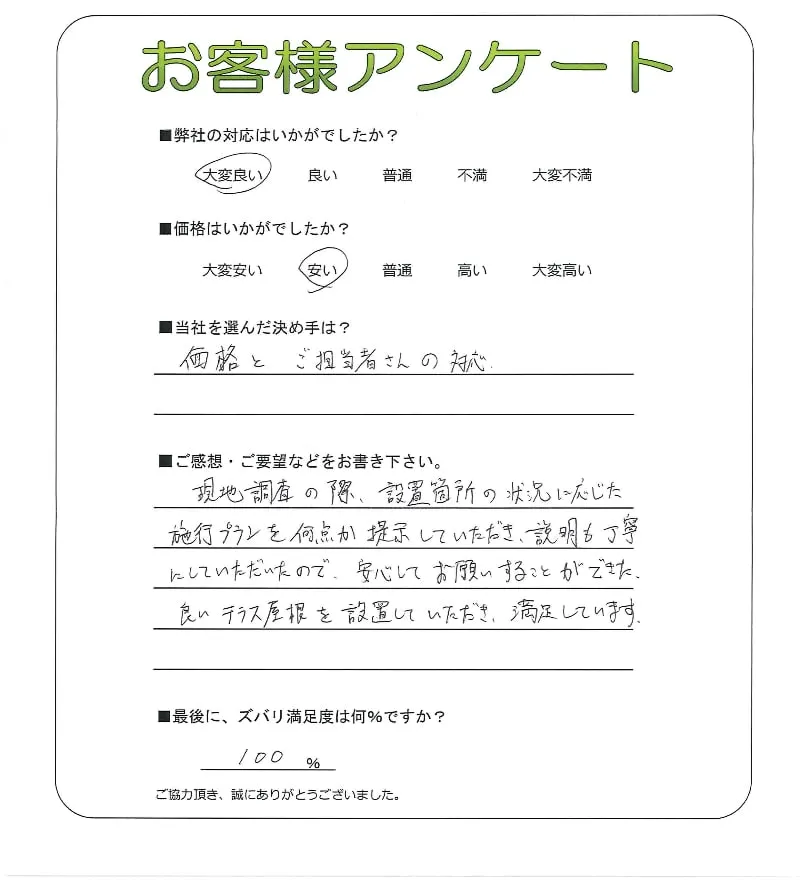 お客様アンケート
■弊社の対応はいかがでしたか？
大変良い 良い 普通 不満 大変不満
■価格はいかがでしたか？
大変安い 安い 普通 高い 大変高い
■当社を選んだ決め手は？
価格と ご担当者さんの対応.
■ご感想・ご要望などをお書き下さい。
現地調査の際、設置箇所の状況に応じた
施行プランを何点か提示していただき、説明も丁寧
にしていただいたので、安心してお願いすることができた.
良いテラス屋根を設置していただき、満足しています.
■最後に、ズバリ満足度は何％ですか？
100 ％
ご協力頂き、誠にありがとうございました。